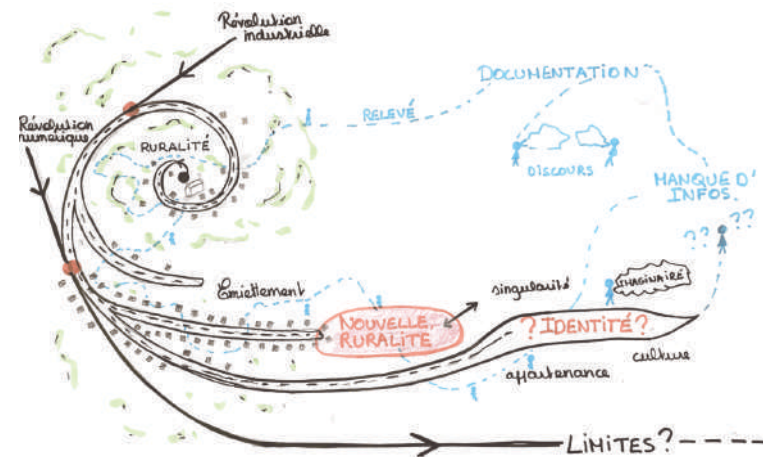 Révolution
industrielle
Révolution
numérique
RURALITÉ
RELEVÉ
DOCUMENTATION
DISCOURS
MANQUE D'
INFOS.
?? ??
Emiettement
NOUVELLE
RURALITÉ
singularité
IMAGINAIRE
? IDENTITÉ ?
culture
appartenance
LIMITES ?